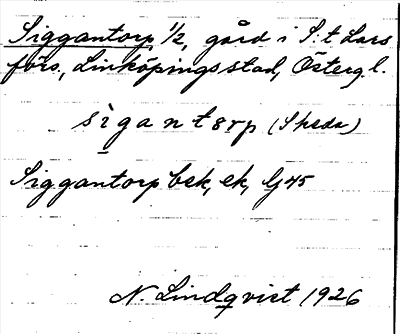 Siggantorp 1/2, gård i S:t Lars
förs., Linköpings stad, Östergl.
sìgantɛrp (Skeda)
Siggantorp bek, ek, Gj 45
N. Lindqvist 1926